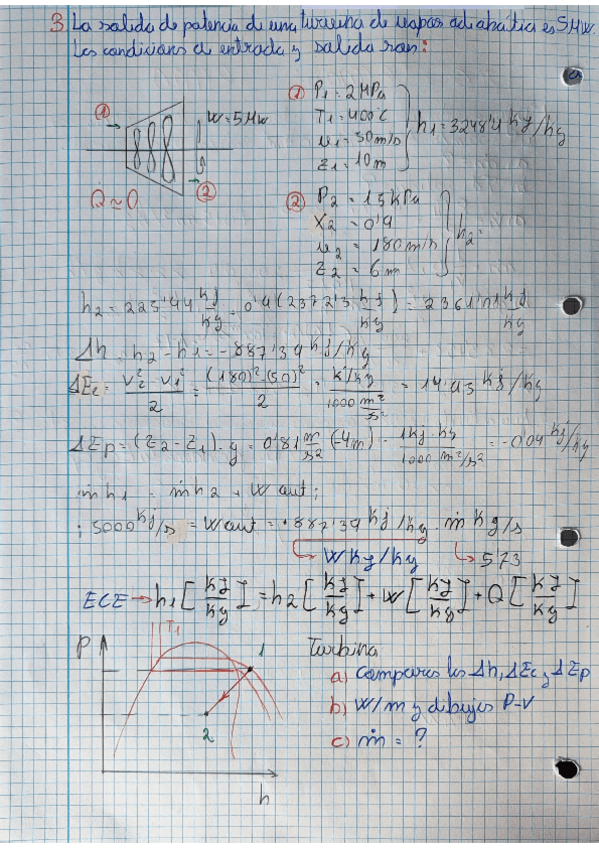 3. La salida de potencia de una turbina de vapor adiabática es 5MW.
Las condicions de entrada y salida son:
①
W=5Mw
Q≃0
②
① P1=2MPa
T1=400°C
u1=50m/s
z1=10m
h1=3248'4 kJ/kg
② P2=15kPa
X2=0'9
u2=180m/s
z2=6m
h2=
h2=225'94 kJ/kg + 0'9(2372'3 kJ/kg) = 2361'01 kJ/kg
Δh = h2-h1 = -887'39 kJ/kg
ΔEc = (V2²-V1²)/2 = ((180)²-(50)²)/2 · (kJ/kg)/(1000 m²/s²) = 14.93 kJ/kg
ΔEp=(z2-z1)·g = 9'81 m/s² (-4m) · (1kJ kg)/(1000 m²/s²) = -0'04 kJ/kg
ṁh1 = ṁh2 + W out;
; 5000 kJ/s = W out = 882'39 kJ/kg · ṁ kg/s
W kJ/kg
5'73
ECE → h1[kJ/kg] = h2[kJ/kg] + W[kJ/kg] + Q[kJ/kg]
P
T1
1
2
h
Turbina
a) Compares los Δh, ΔEc y ΔEp
b) W/m y dibujes P-V
c) ṁ = ?